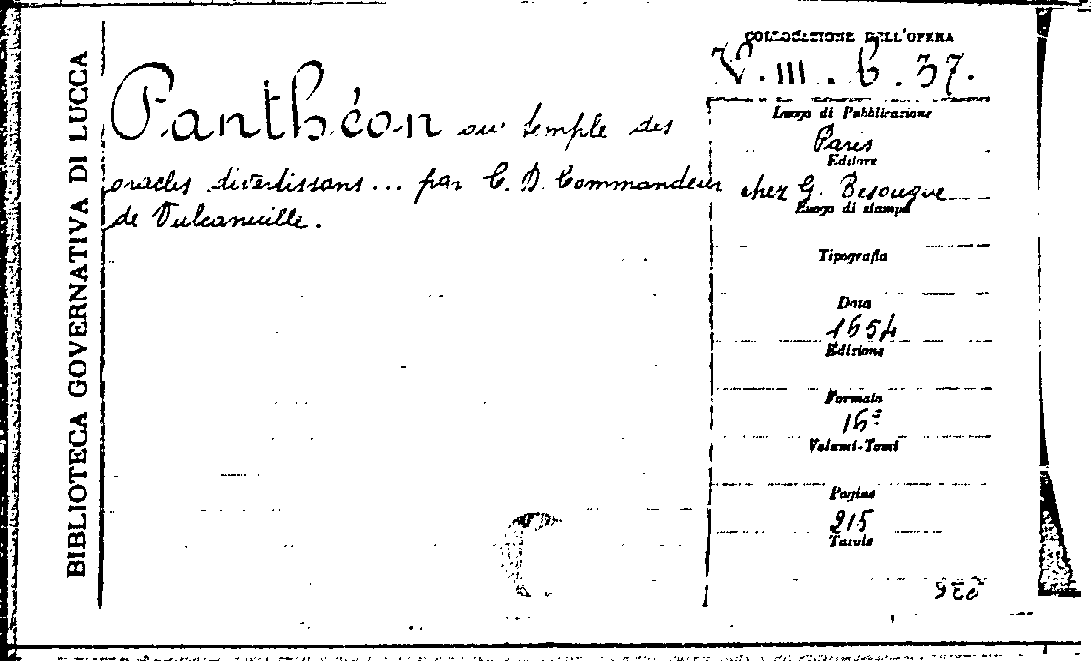 BIBLIOTECA GOVERNATIVA DI LUCCA
Panthéon ou temple des
oracles divertissans... par C. D. Commandeur
de Vulcanville.
COLLOCAZIONE DELL'OPERA
V. III. 6. 37.
Luogo di Pubblicazione
Paris
Editore
chez G. Besougne
Luogo di stampa
Tipografia
Data
1654
Edizione
Formato
16º
Volumi-Tomi
Pagine
215
Tavole